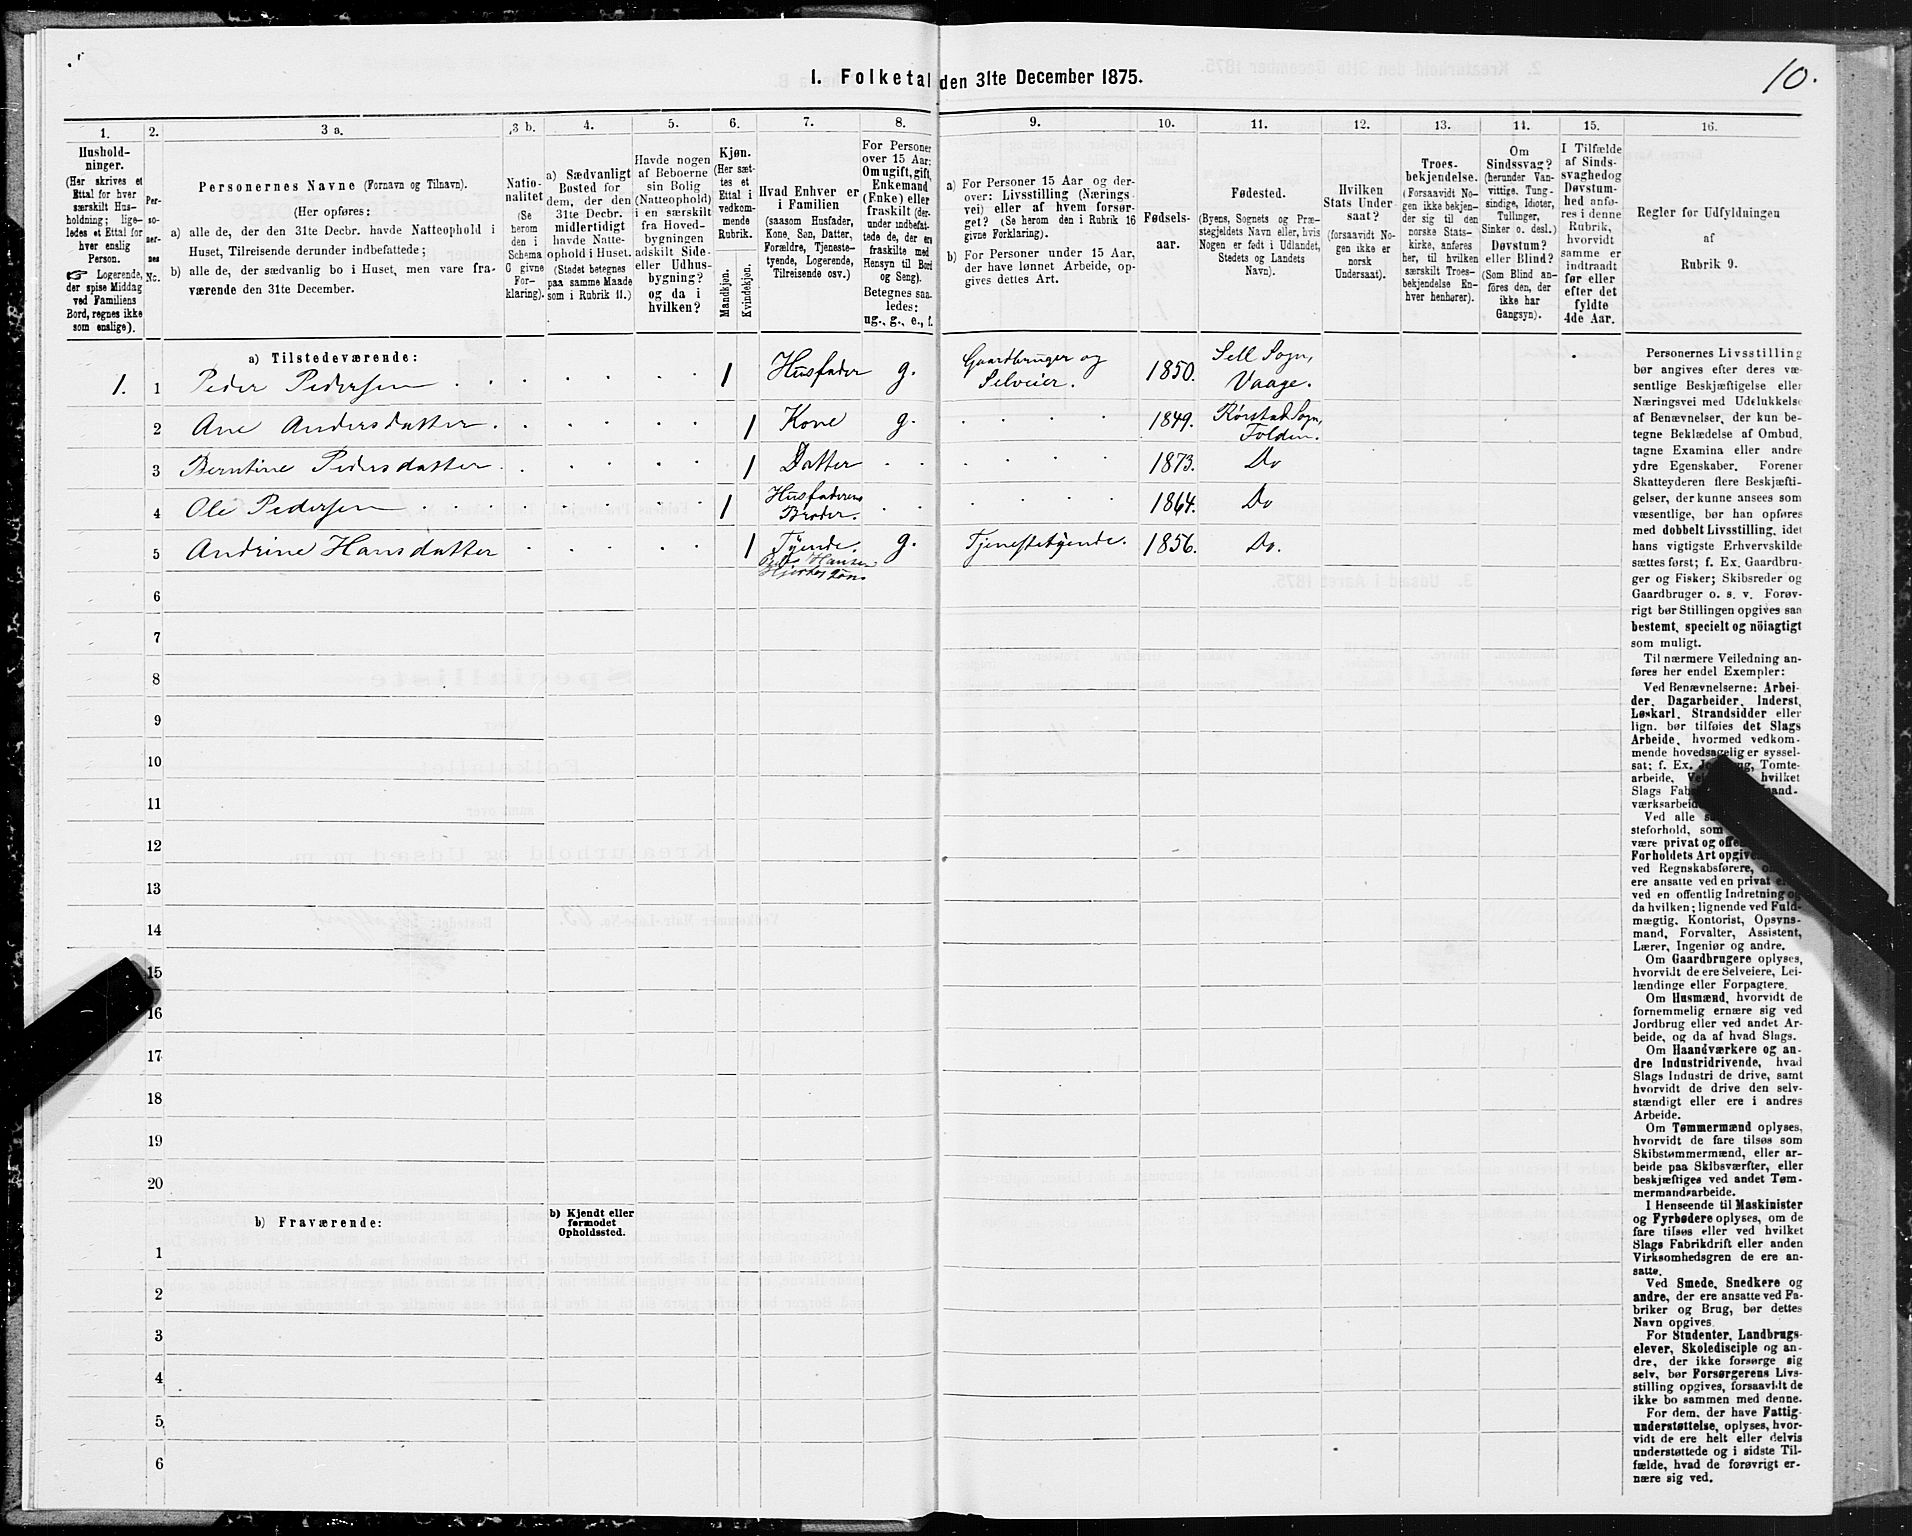 I. Folketal den 31te December 1875.
10.
1.
Hushold-
ninger.
(Her skrives et
Ettal for hver
særskilt Hus-
holdning; lige-
ledes et Ettal for
hver enslig
Person.
☞ Logerende,
der spise Middag
ved Familiens
Bord, regnes ikke
som enslige).
2.
Per-
so-
ner-
nes
No.
3 a.
Personernes Navne (Fornavn og Tilnavn).
(Her opføres:
a) alle de, der den 31te Decbr. havde Natteophold i
Huset, Tilreisende derunder indbefattede;
b) alle de, der sædvanlig bo i Huset, men vare fra-
værende den 31te December.
3 b.
Natio-
nalitet
(Se
herom
den i
Schema
C givne
For-
klaring).
4.
a) Sædvanligt
Bosted for
dem, der den
31te Decbr.
midlertidigt
havde Natte-
ophold i Huset.
(Stedet betegnes
paa samme Maade
som i Rubrik 11.)
5.
Havde nogen
af Beboerne
sin Bolig
(Natteophold)
i en særskilt
fra Hoved-
bygningen
adskilt Side-
eller Udhus-
bygning?
og da i
hvilken?
6.
Kjøn.
(Her sæt-
tes et
Ettal i
vedkom-
mende
Rubrik.
Mandkjøn.
Kvindekjøn.
7.
Hvad Enhver er
i Familien
(saasom Husfader,
Kone, Søn, Datter,
Forældre, Tjeneste-
tyende, Logerende,
Tilreisende osv.)
8.
For Personer
over 15 Aar:
Om ugift, gift,
Enkemand
(Enke) eller
fraskilt (der-
under indbefat-
tede de, der ere
fraskilte med
Hensyn til Bord
og Seng).
Betegnes saa-
ledes:
ug., g., e., f.
9.
a) For Personer 15 Aar og der-
over: Livsstilling (Nærings-
vei) eller af hvem forsør-
get? (Se herom den i Rubrik 16
givne Forklaring).
b) For Personer under 15 Aar,
der have lønnet Arbeide, op-
gives dettes Art.
10.
Fødsels-
aar.
11.
Fødested.
(Byens, Sognets og Præ-
stegjeldets Navn eller, hvis
Nogen er født i Udlandet,
Stedets og Landets
Navn).
12.
Hvilken
Stats Under
saat?
(forsaavidt No-
gen ikke er
norsk
Undersaat).
13.
Troes-
bekjendelse.
(Forsaavidt No-
gen ikke bekjen-
der sig til den
norske Stats-
kirke, anføres
her, til hvilken
særskilt Troes-
bekjendelse En-
hver henhører).
14.
Om
Sindssvag?
(herunder Van-
vittige, Tung-
sindige, Idioter,
Tullinger,
Sinker o. desl.)
Døvstum?
eller Blind?
(Som Blind an-
føres den, der
ikke har
Gangsyn).
15.
I Tilfælde
af Sinds-
svaghed og
Døvstum-
hed anfø-
res i denne
Rubrik,
hvorvidt
samme er
indtraadt
før eller
efter det
fyldte
4de Aar.
16.
Regler for Udfyldningen
af
Rubrik 9.
a) Tilstedeværende:
1. 1 Peder Pedersen 1 Husfader g. Gaardbruger og Selveier. 1850. Sell Sogn, Vaage.
2 Ane Andersdatter 1 Kone g. 1849. Rørstad Sogn, Folden.
3 Berntine Pedersdatter 1 Datter 1873. Do
4 Ole Pedersen 1 Husfaderens Broder. 1864. Do
5 Andrine Hansdatter 1 Tyende. g. Tjenestetyende. 1856. Do.
Hansen
6
7
8
9
10
11
12
13
14
15
16
17
18
19
20
b) Fraværende:
b) Kjendt eller
formodet
Opholdssted.
1
2
3
4
5
6
Personernes Livsstilling
bør angives efter deres væ-
sentlige Beskjæftigelse eller
Næringsvei med Udelukkelse
af Benævnelser, der kun be-
tegne Beklædelse af Ombud,
tagne Examina eller andre
ydre Egenskaber. Forener
Skatteyderen flere Beskjæfti-
gelser, der kunne ansees som
væsentlige, bør han opføres
med dobbelt Livsstilling, idet
hans vigtigste Erhvervskilde
sættes først; f. Ex. Gaardbru-
ger og Fisker; Skibsreder og
Gaardbruger o. s. v. Forøv-
rigt bør Stillingen opgives saa
bestemt, specielt og nöiagtigt
som muligt.
Til nærmere Veiledning an-
føres her endel Exempler:
Ved Benævnelserne: Arbei-
der, Dagarbeider, Inderst,
Løskarl, Strandsidder eller
lign. bør tilføies det Slags
Arbeide, hvormed vedkom-
mende hovedsagelig er syssel-
sat; f. Ex. Tomte-
arbeide, hvilket
Slags
værksarbeide
Ved alle
steforhold, som
være privat og
Forholdets Art
ved Regnskabsførere,
ere ansatte ved en privat
ved en offentlig Indretning og
da hvilken; lignende ved Fuld-
mægtig, Kontorist, Opsyns-
mand, Forvalter, Assistent,
Lærer, Ingeniør og andre.
Om Gaardbrugere oplyses,
hvorvidt de ere Selveiere, Lei-
lændinge eller Forpagtere.
Om Husmænd, hvorvidt de
fornemmelig ernære sig ved
Jordbrug eller ved andet Ar-
beide, og da af hvad Slags.
Om Haandværkere og an-
dre Industridrivende, hvad
Slags Industri de drive, samt
hvorvidt de drive den selv-
stændigt eller ere i andres
Arbeide.
Om Tømmermænd oplyses,
hvorvidt de fare tilsøs som
Skibstømmermænd, eller ar-
beide paa Skibsværfter, eller
beskjæftiges ved andet Tøm-
mermandsarbeide.
I Henseende til Maskinister
og Fyrbødere oplyses, om de
fare tilsøs eller ved hvilket
Slags Fabrikdrift eller anden
Virksomhedsgren de ere an-
satte.
Ved Smede, Snedkere og
andre, der ere ansatte ved Fa-
briker og Brug, bør dettes
Navn opgives.
For Studenter, Landbrugs-
elever, Skoledisciple og an-
dre, der ikke forsørge sig
selv, bør Forsørgerens Livs-
stilling opgives, forsaavidt de
ikke bo sammen med denne.
For dem, der have Fattig-
understøttelse, oplyses, hvor-
vidt de ere helt eller delvis
understøttede og i sidste Til-
fælde, hvad de forøvrigt er-
nære sig ved.